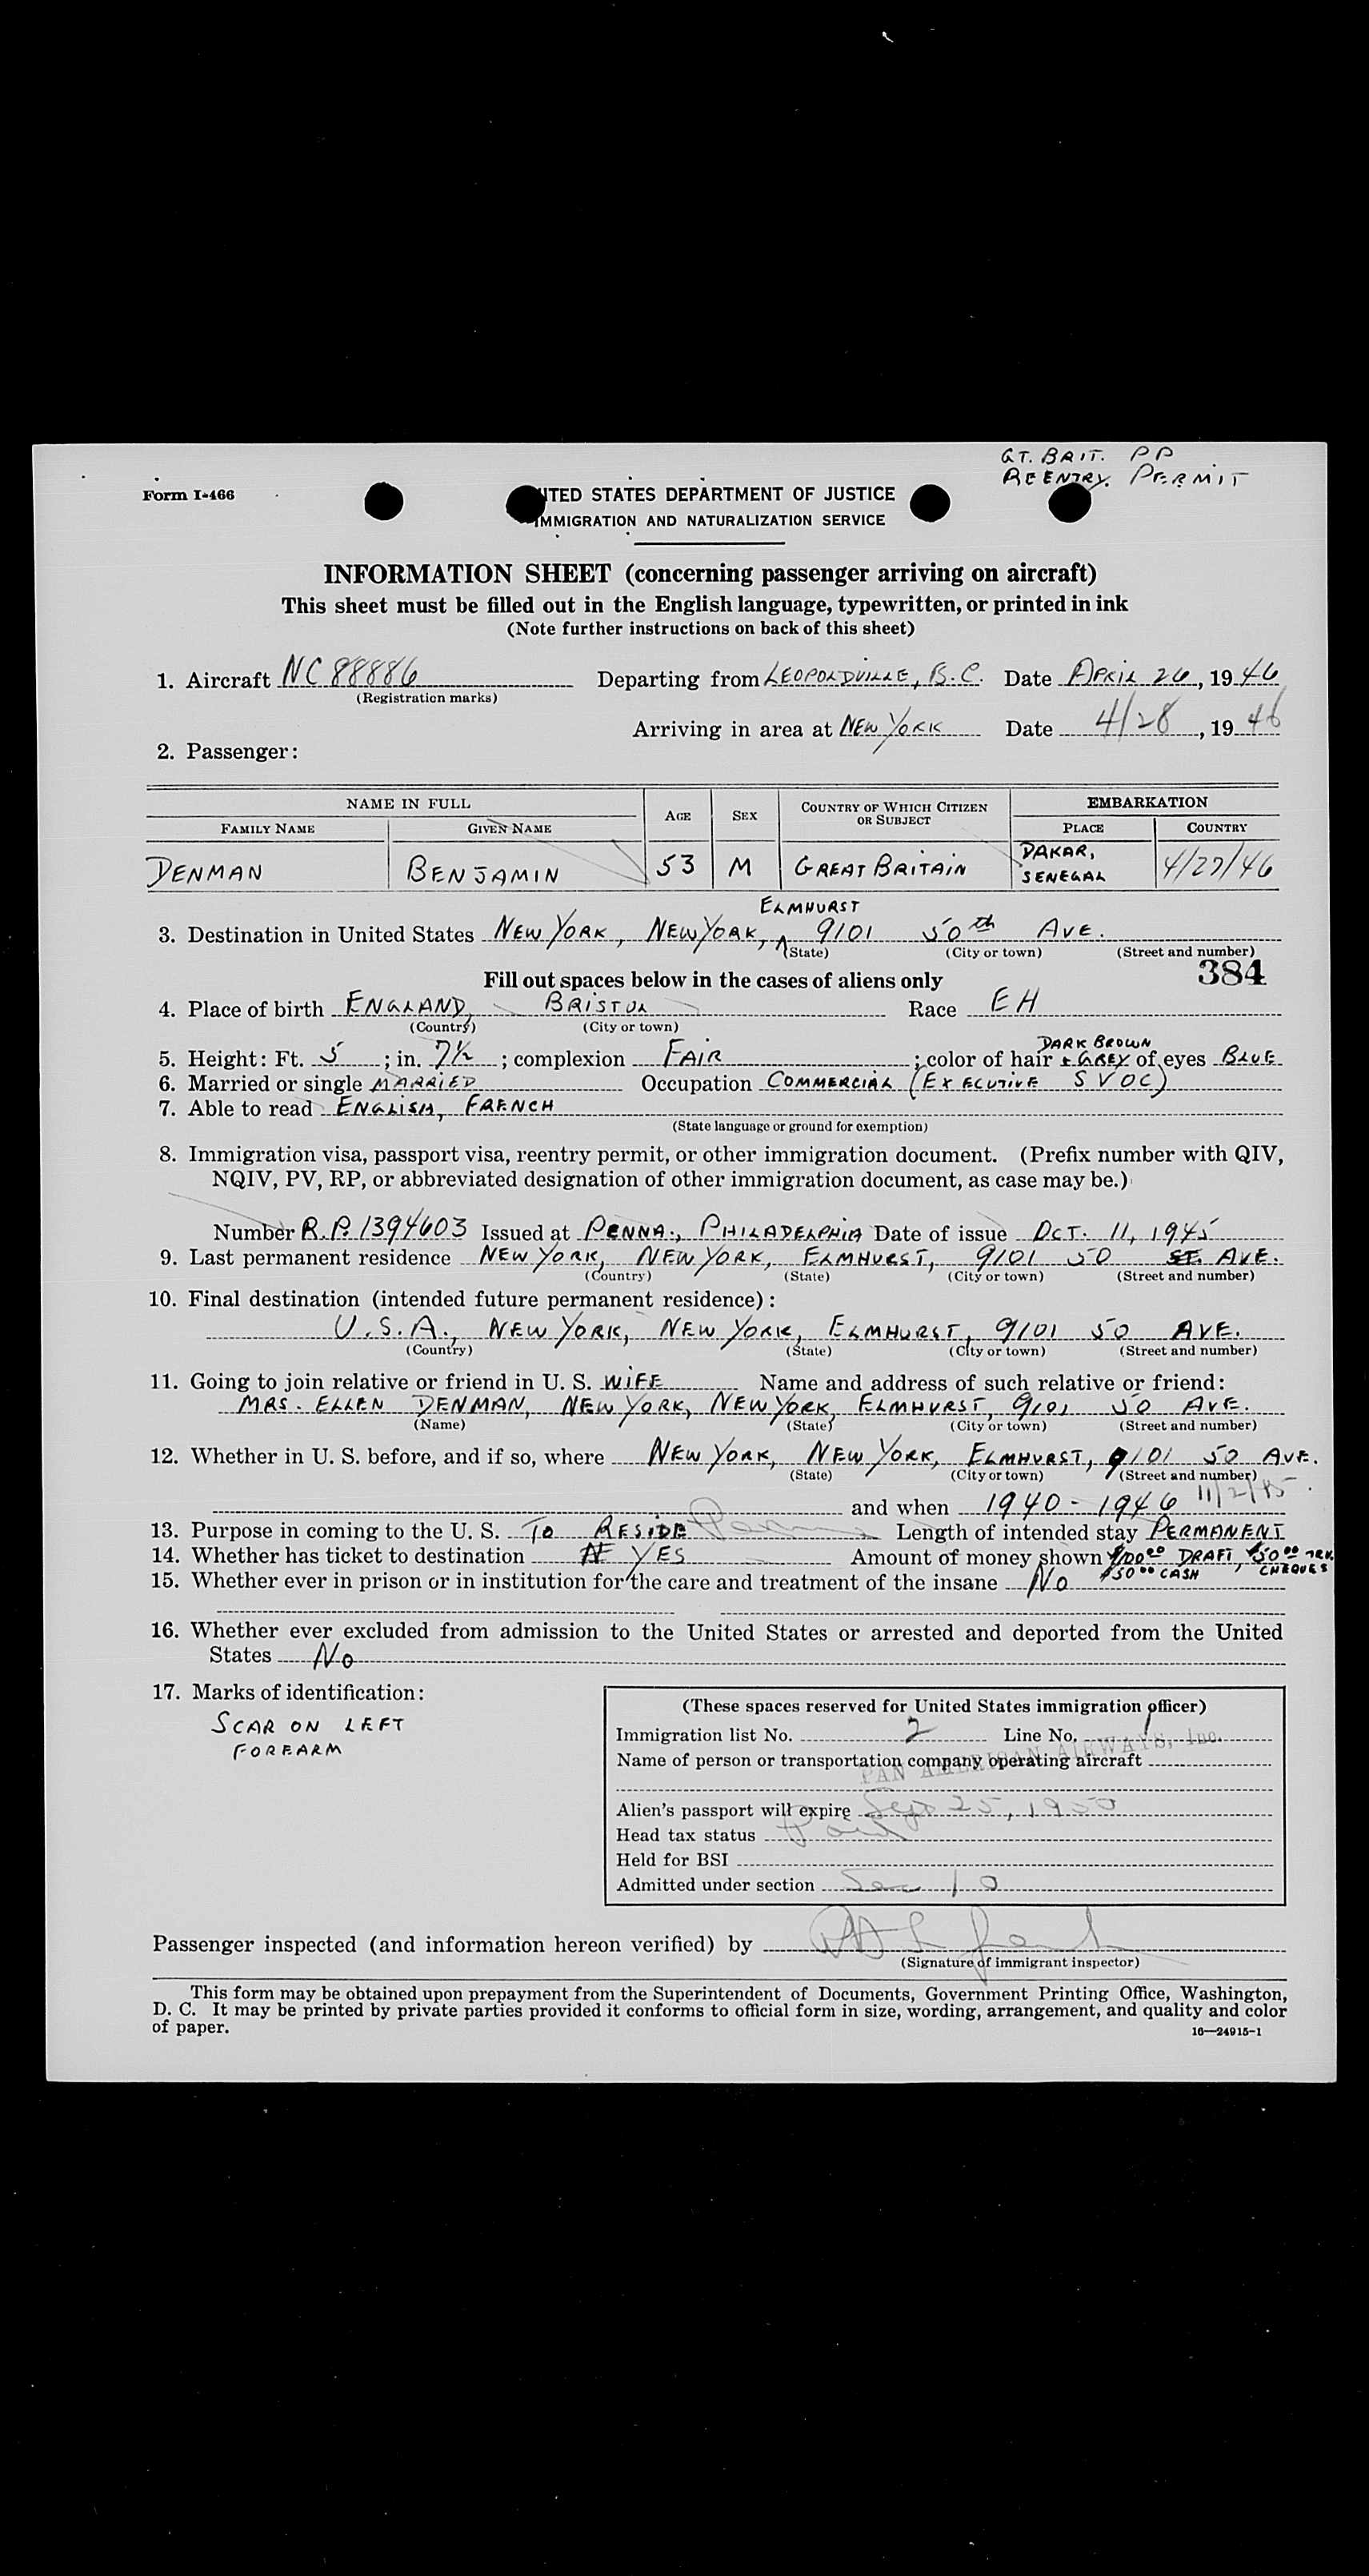 GT. BRIT. PP
REENTRY PERMIT
Form I-466
UNITED STATES DEPARTMENT OF JUSTICE
IMMIGRATION AND NATURALIZATION SERVICE
INFORMATION SHEET (concerning passenger arriving on aircraft)
This sheet must be filled out in the English language, typewritten, or printed in ink
(Note further instructions on back of this sheet)
1. Aircraft NC 88886 Departing from LEOPOLDVILLE, B.C. Date APRIL 26, 1946
(Registration marks)
Arriving in area at NEW YORK Date 4/28, 1946
2. Passenger:
NAME IN FULL AGE SEX COUNTRY OF WHICH CITIZEN OR SUBJECT EMBARKATION
FAMILY NAME GIVEN NAME PLACE COUNTRY
DENMAN BENJAMIN 53 M GREAT BRITAIN DAKAR, SENEGAL 4/27/46
ELMHURST
3. Destination in United States NEW YORK, NEW YORK, 9101 50th AVE.
(State) (City or town) (Street and number)
Fill out spaces below in the cases of aliens only 384
4. Place of birth ENGLAND, BRISTOL Race EH
(Country) (City or town)
DARK BROWN
5. Height: Ft. 5; in. 7½; complexion FAIR; color of hair + GREY of eyes BLUE
6. Married or single MARRIED Occupation COMMERCIAL (EXECUTIVE SVOC)
7. Able to read ENGLISH, FRENCH
(State language or ground for exemption)
8. Immigration visa, passport visa, reentry permit, or other immigration document. (Prefix number with QIV,
NQIV, PV, RP, or abbreviated designation of other immigration document, as case may be.)
Number R.P. 1394603 Issued at PENNA., PHILADELPHIA Date of issue OCT. 11, 1945
9. Last permanent residence NEW YORK, NEW YORK, ELMHURST, 9101 50 ST. AVE.
(Country) (State) (City or town) (Street and number)
10. Final destination (intended future permanent residence):
U.S.A., NEW YORK, NEW YORK, ELMHURST, 9101 50 AVE.
(Country) (State) (City or town) (Street and number)
11. Going to join relative or friend in U. S. WIFE Name and address of such relative or friend:
MRS. ELLEN DENMAN, NEW YORK, NEW YORK, ELMHURST, 9101 50 AVE.
(Name) (State) (City or town) (Street and number)
12. Whether in U. S. before, and if so, where NEW YORK, NEW YORK, ELMHURST, 9101 50 AVE.
(State) (City or town) (Street and number)
and when 1940 - 1946 11/2/45
13. Purpose in coming to the U. S. TO RESIDE Length of intended stay PERMANENT
14. Whether has ticket to destination YES Amount of money shown $100.00 DRAFT, $50.00 TRV. CHEQUES
$50.00 CASH
15. Whether ever in prison or in institution for the care and treatment of the insane NO
16. Whether ever excluded from admission to the United States or arrested and deported from the United
States NO
17. Marks of identification:
SCAR ON LEFT
FOREARM
(These spaces reserved for United States immigration officer)
Immigration list No. 2 Line No. 1
Name of person or transportation company operating aircraft
PAN AMERICAN AIRWAYS, Inc.
Alien's passport will expire Sept 25, 1950
Head tax status Paid
Held for BSI
Admitted under section Sec 10
Passenger inspected (and information hereon verified) by
(Signature of immigrant inspector)
This form may be obtained upon prepayment from the Superintendent of Documents, Government Printing Office, Washington,
D. C. It may be printed by private parties provided it conforms to official form in size, wording, arrangement, and quality and color
of paper.
16—24915-1